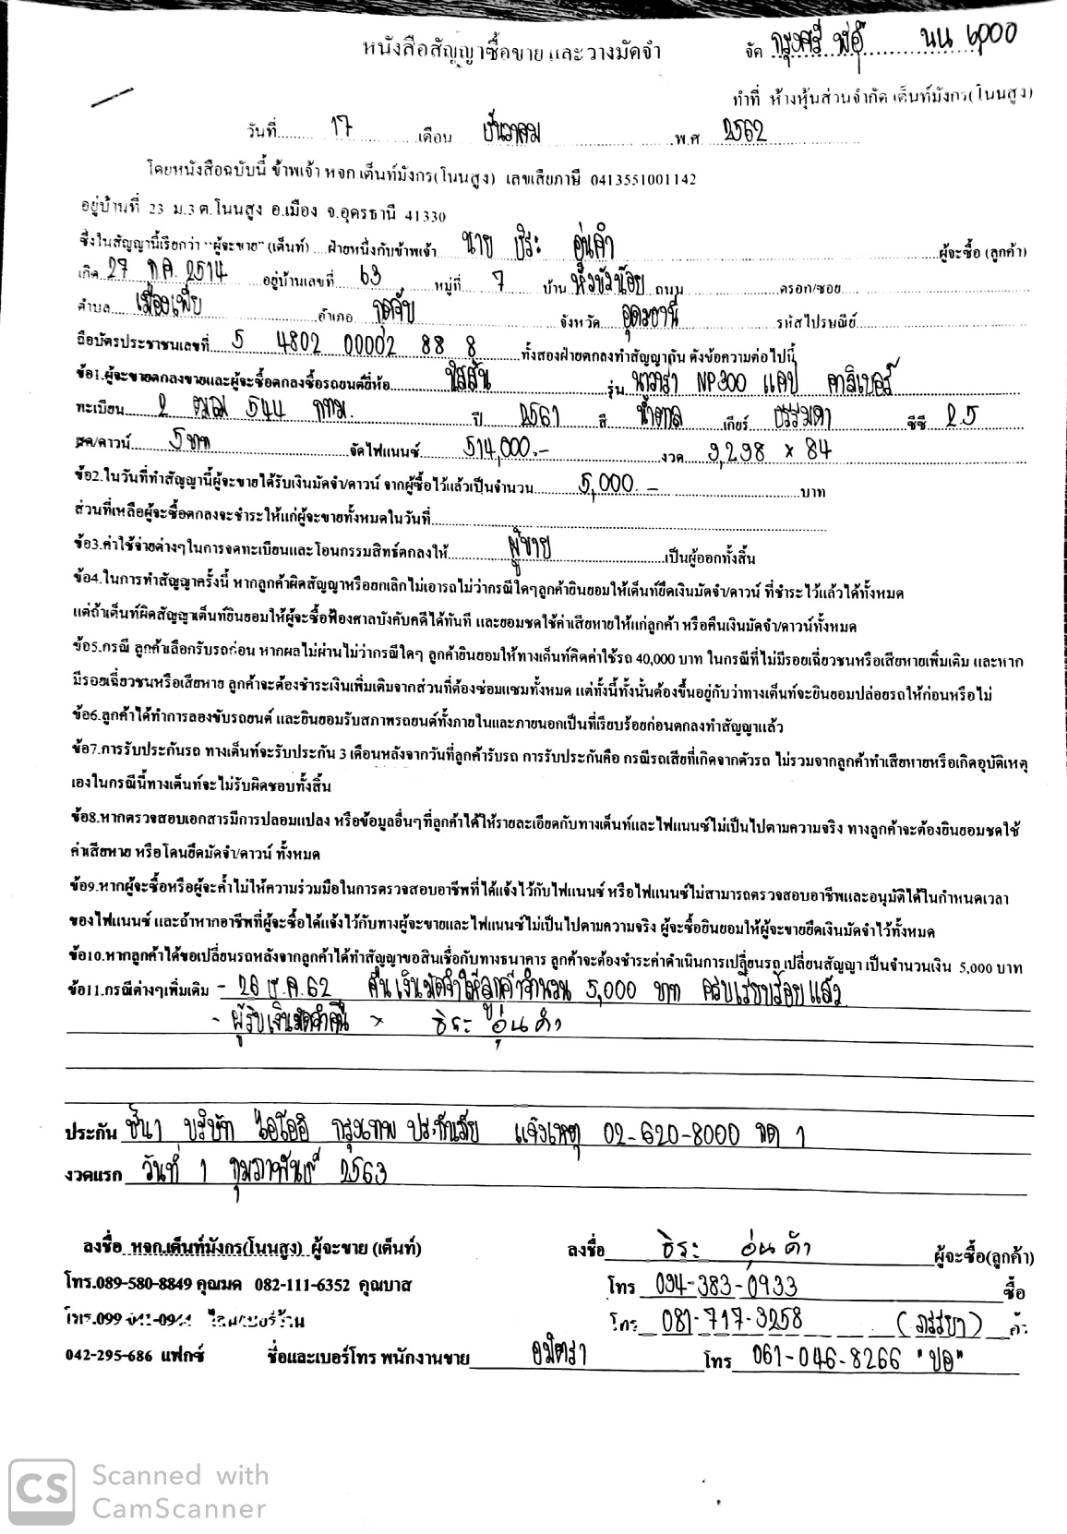 หนังสือสัญญาซื้อขาย และ วางมัดจำ
จัด กรุงศรี พี่อุ๊ นน 6,000
ทำที่ ห้างหุ้นส่วนจำกัด เต็นท์มังกร(โนนสูง)
วันที่ 17 เดือน ธันวาคม พ.ศ 2562
โดยหนังสือฉบับนี้ ข้าพเจ้า หจก เต็นท์มังกร(โนนสูง) เลขเสียภาษี 0413551001142
อยู่บ้านที่ 23 ม.3 ต.โนนสูง อ.เมือง จ.อุดรธานี 41330
ซึ่งในสัญญานี้เรียกว่า "ผู้จะขาย" (เต็นท์) ฝ่ายหนึ่งกับข้าพเจ้า นาย ธิระ อุ่นคำ ผู้จะซื้อ (ลูกค้า)
เกิด 27 ก.ค. 2514 อยู่บ้านเลขที่ 63 หมู่ที่ 7 บ้าน หัวบึงน้อย ถนน ตรอก/ซอย
ตำบล เมืองเพีย อำเภอ กุดจับ จังหวัด อุดรธานี รหัสไปรษณีย์
ถือบัตรประชาชนเลขที่ 5 4802 00002 88 8 ทั้งสองฝ่ายตกลงทำสัญญากัน ดังข้อความต่อไปนี้
ข้อ1.ผู้จะขายตกลงขายและผู้จะซื้อตกลงซื้อรถยนต์ยี่ห้อ นิสสัน รุ่น นาวาร่า NP300 แคป คาลิเบอร์
ทะเบียน 2 ฒฌ 544 กทม. ปี 2561 สี น้ำตาล เกียร์ ธรรมดา ซีซี 2.5
สด/ดาวน์ 5 บาท จัดไฟแนนซ์ 514,000.- งวด 9,298 x 84
ข้อ2.ในวันที่ทำสัญญานี้ผู้จะขายได้รับเงินมัดจำ/ดาวน์ จากผู้ซื้อไว้แล้วเป็นจำนวน 5,000.- บาท
ส่วนที่เหลือผู้จะซื้อตกลงจะชำระให้แก่ผู้จะขายทั้งหมดในวันที่
ข้อ3.ค่าใช้จ่ายต่างๆในการจดทะเบียนและโอนกรรมสิทธ์ตกลงให้ ผู้ขาย เป็นผู้ออกทั้งสิ้น
ข้อ4.ในการทำสัญญาครั้งนี้ หากลูกค้าผิดสัญญาหรือยกเลิกไม่เอารถไม่ว่ากรณีใดๆลูกค้ายินยอมให้เต็นท์ยึดเงินมัดจำ/ดาวน์ ที่ชำระไว้แล้วได้ทั้งหมด
แต่ถ้าเต็นท์ผิดสัญญาเต็นท์ยินยอมให้ผู้จะซื้อฟ้องศาลบังคับคดีได้ทันที และยอมชดใช้ค่าเสียหายให้แก่ลูกค้า หรือคืนเงินมัดจำ/ดาวน์ทั้งหมด
ข้อ5.กรณี ลูกค้าเลือกรับรถก่อน หากผลไม่ผ่านไม่ว่ากรณีใดๆ ลูกค้ายินยอมให้ทางเต็นท์คิดค่าใช้รถ 40,000 บาท ในกรณีที่ไม่มีรอยเฉี่ยวชนหรือเสียหายเพิ่มเติม และหาก
มีรอยเฉี่ยวชนหรือเสียหาย ลูกค้าจะต้องชำระเงินเพิ่มเติมจากส่วนที่ต้องซ่อมแซมทั้งหมด แต่ทั้งนี้ทั้งนั้นต้องขึ้นอยู่กับว่าทางเต็นท์จะยินยอมปล่อยรถให้ก่อนหรือไม่
ข้อ6.ลูกค้าได้ทำการลองขับรถยนต์ และยินยอมรับสภาพรถยนต์ทั้งภายในและภายนอกเป็นที่เรียบร้อยก่อนตกลงทำสัญญาแล้ว
ข้อ7.การรับประกันรถ ทางเต็นท์จะรับประกัน 3 เดือนหลังจากวันที่ลูกค้ารับรถ การรับประกันคือ กรณีรถเสียที่เกิดจากตัวรถ ไม่รวมจากลูกค้าทำเสียหายหรือเกิดอุบัติเหตุ
เองในกรณีนี้ทางเต็นท์จะไม่รับผิดชอบทั้งสิ้น
ข้อ8.หากตรวจสอบเอกสารมีการปลอมแปลง หรือข้อมูลอื่นๆที่ลูกค้าได้ให้รายละเอียดกับทางเต็นท์และไฟแนนซ์ไม่เป็นไปตามความจริง ทางลูกค้าจะต้องยินยอมชดใช้
ค่าเสียหาย หรือโดนยึดมัดจำ/ดาวน์ ทั้งหมด
ข้อ9.หากผู้จะซื้อหรือผู้จะค้ำไม่ให้ความร่วมมือในการตรวจสอบอาชีพที่ได้แจ้งไว้กับไฟแนนซ์ หรือไฟแนนซ์ไม่สามารถตรวจสอบอาชีพและอนุมัติได้ในกำหนดเวลา
ของไฟแนนซ์ และถ้าหากอาชีพที่ผู้จะซื้อได้แจ้งไว้กับทางผู้จะขายและไฟแนนซ์ไม่เป็นไปตามความจริง ผู้จะซื้อยินยอมให้ผู้จะขายยึดเงินมัดจำไว้ทั้งหมด
ข้อ10.หากลูกค้าได้ขอเปลี่ยนรถหลังจากลูกค้าได้ทำสัญญาขอสินเชื่อกับทางธนาคาร ลูกค้าจะต้องชำระค่าดำเนินการเปลี่ยนรถ เปลี่ยนสัญญา เป็นจำนวนเงิน 5,000 บาท
ข้อ11.กรณีต่างๆเพิ่มเติม - 26 ธ.ค. 62 คืนเงินมัดจำให้ลูกค้าจำนวน 5,000 บาท ครบเรียบร้อยแล้ว
- ผู้รับเงินมัดจำคืน x ธิระ อุ่นคำ
ประกัน ชั้น 1 บริษัท ไอโออิ กรุงเทพ ประกันภัย แจ้งเหตุ 02-620-8000 กด 1
งวดแรก วันที่ 1 กุมภาพันธ์ 2563
ลงชื่อ หจก.เต็นท์มังกร(โนนสูง) ผู้จะขาย (เต็นท์) ลงชื่อ ธิระ อุ่นคำ ผู้จะซื้อ(ลูกค้า)
โทร.089-580-8849 คุณมด 082-111-6352 คุณบาส โทร 094-383-0933 ซื้อ
โทร.099 โทร 081-717-3258 (ภรรยา) ค้ำ
042-295-686 แฟกซ์ ชื่อและเบอร์โทร พนักงานขาย อมิตรา โทร 061-046-8266 "ปอ"
CS Scanned with
CamScanner